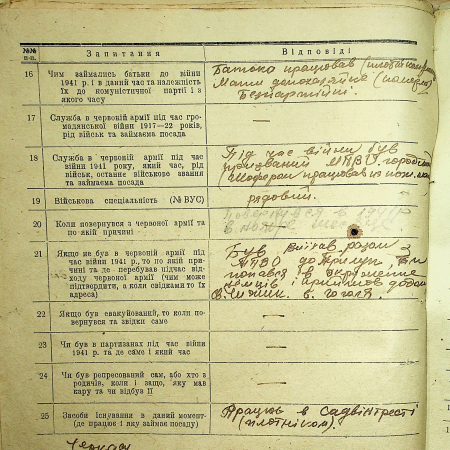 №№ п-п.
Запитання
Відповіді
16
Чим займались батьки до війни
1941 р. і в даний час та належність
їх до комуністичної партії і з
якого часу
Батько працював
Мати домохазяйка
Безпартійні.
17
Служба в червоній армії під час гро-
мадянської війни 1917—22 років,
рід військ та займаєма посада
—
18
Служба в червоній армії під час
війни 1941 року, який час, рід
військ, останнє військове звання
та займаєма посада
Під час війни був
призваний
Шофером працював
19
Військова спеціяльність (№ ВУС)
рядовий.
20
Коли повернувся з червоної армії та
по якій причині
21
Якщо не був в червоній армії під
час війни 1941 р., то по якій при-
чині та де перебував підчас від-
ходу червоної армії (чим може
підтвердити, а коли свідками то їх
адреса)
Був виїхав разом з
до Прилук, там
попався в окружение
німців і прийшов додому
22
Якщо був евакуйований, то коли по-
вернувся та звідки саме
—
23
Чи був в партизанах під час війни
1941 р. та де саме і який час
—
24
Чи був репресований сам, або хто з
родичів, коли і защо, яку мав
кару та чи відбув її
—
25
Засоби існування в даний момент-
(де працює і яку займає посаду)
Працює в Садвінтресті
(плотніком).